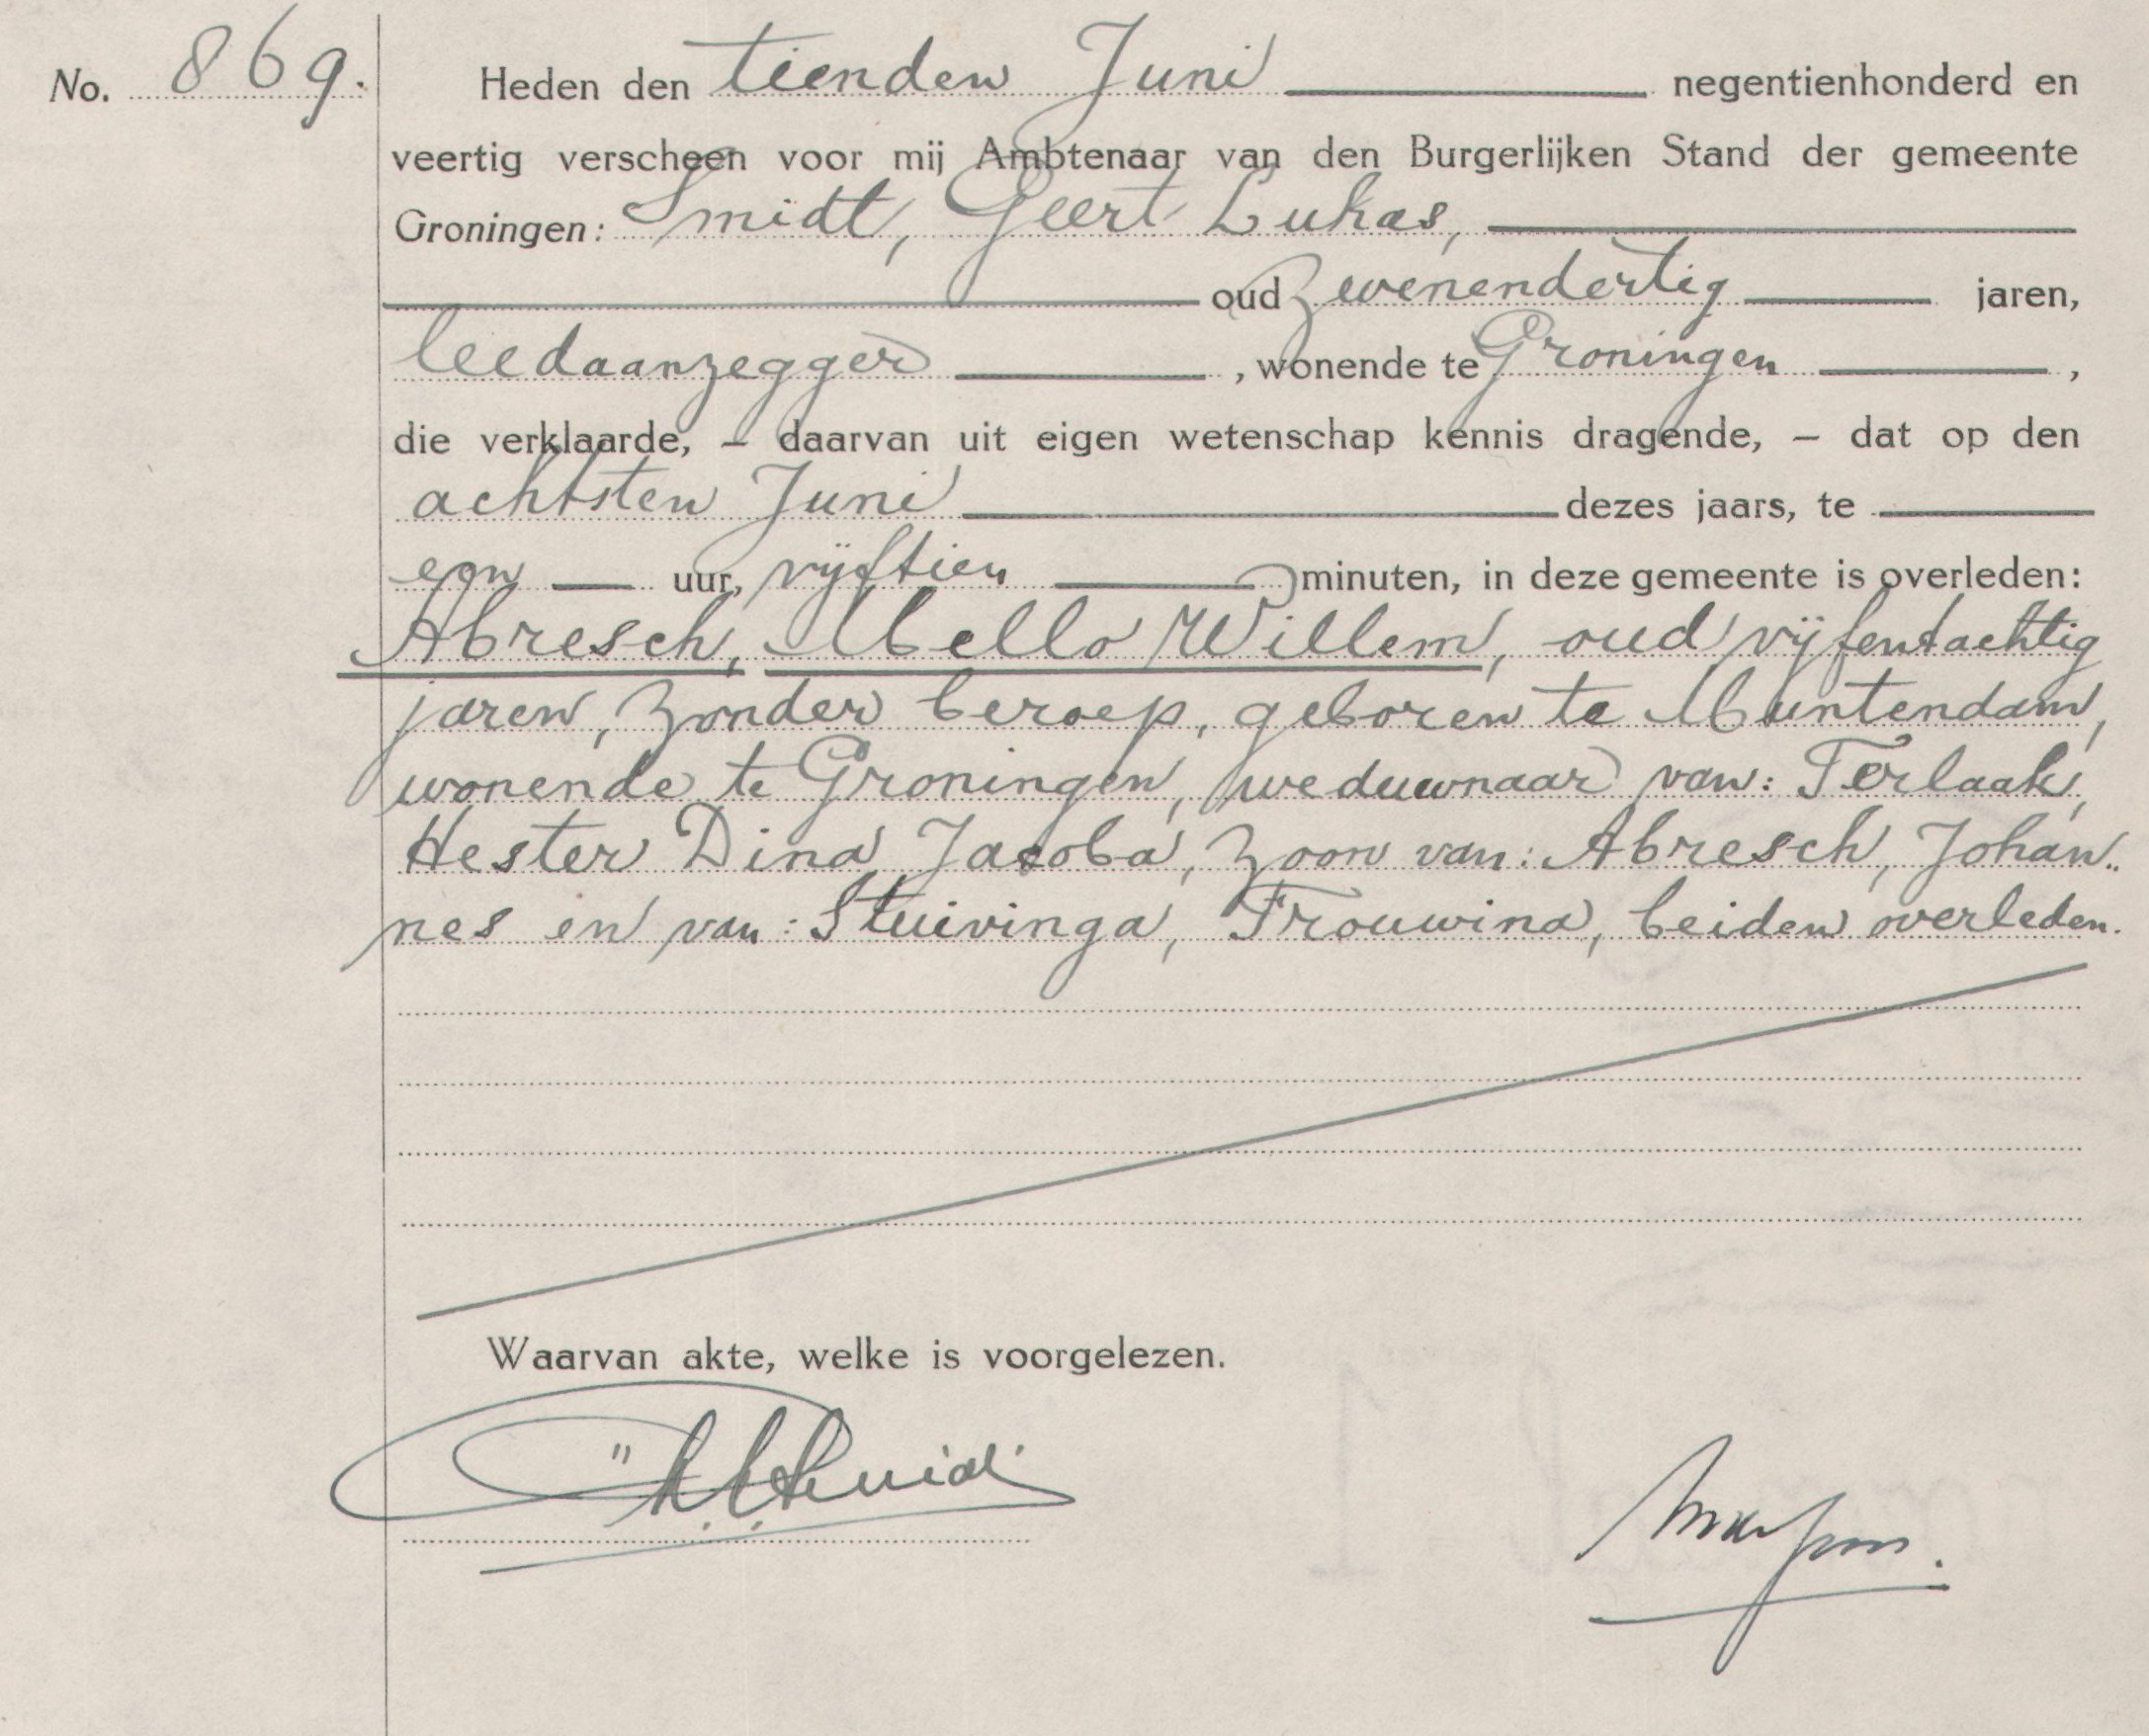 No. 869.
Heden den tienden Juni negentienhonderd en
veertig verscheen voor mij Ambtenaar van den Burgerlijken Stand der gemeente
Groningen: Smidt, Geert Lukas,
oud zevenendertig jaren,
leedaanzegger, wonende te Groningen,
die verklaarde, – daarvan uit eigen wetenschap kennis dragende, – dat op den
achtsten Juni dezes jaars, te
een uur, vijftien minuten, in deze gemeente is overleden:
Abresch, Mello Willem, oud vijfentachtig
jaren, zonder beroep, geboren te Muntendam,
wonende te Groningen, weduwnaar van: Terlaak,
Hester Dina Jacoba, zoon van: Abresch, Johan-
nes en van: Stuivinga, Frouwina, beiden overleden.
Waarvan akte, welke is voorgelezen.